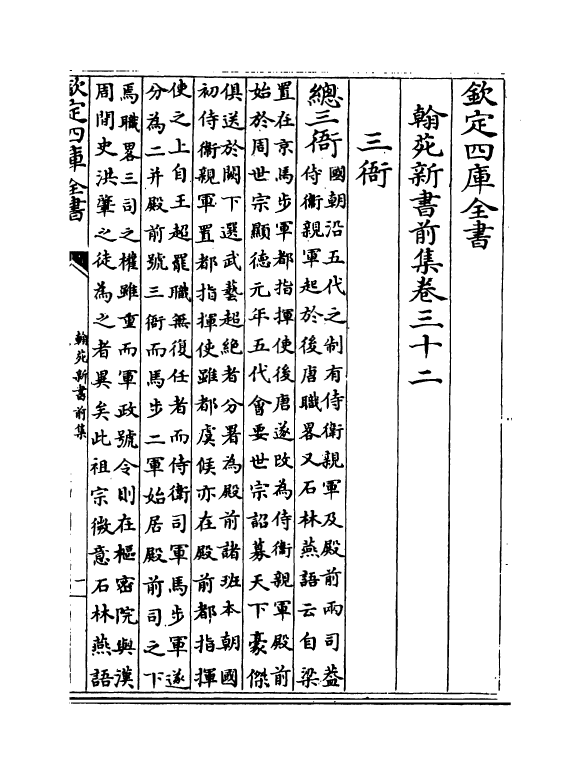 欽定四庫全書
翰苑新書前集卷三十二
三衙
總三衙
國朝沿五代之制有侍衛親軍及殿前兩司葢
侍衛親軍起於後唐職畧又石林燕語云自梁
置在京馬步軍都指揮使後唐遂改為侍衛親軍殿前
始於周世宗顯德元年五代會要世宗詔募天下豪傑
俱送於闕下選武藝超絶者分署為殿前諸班本朝國
初侍衛親軍置都指揮使雖都虞候亦在殿前都指揮
使之上自王超罷職無復任者而侍衛司軍馬步軍遂
分為二并殿前號三衙而馬步二軍始居殿前司之下
焉職畧三司之權雖重而軍政號令則在樞密院與漢
周間史洪肇之徒為之者異矣此祖宗微意石林燕語
欽定四庫全書
翰苑新書前集
一